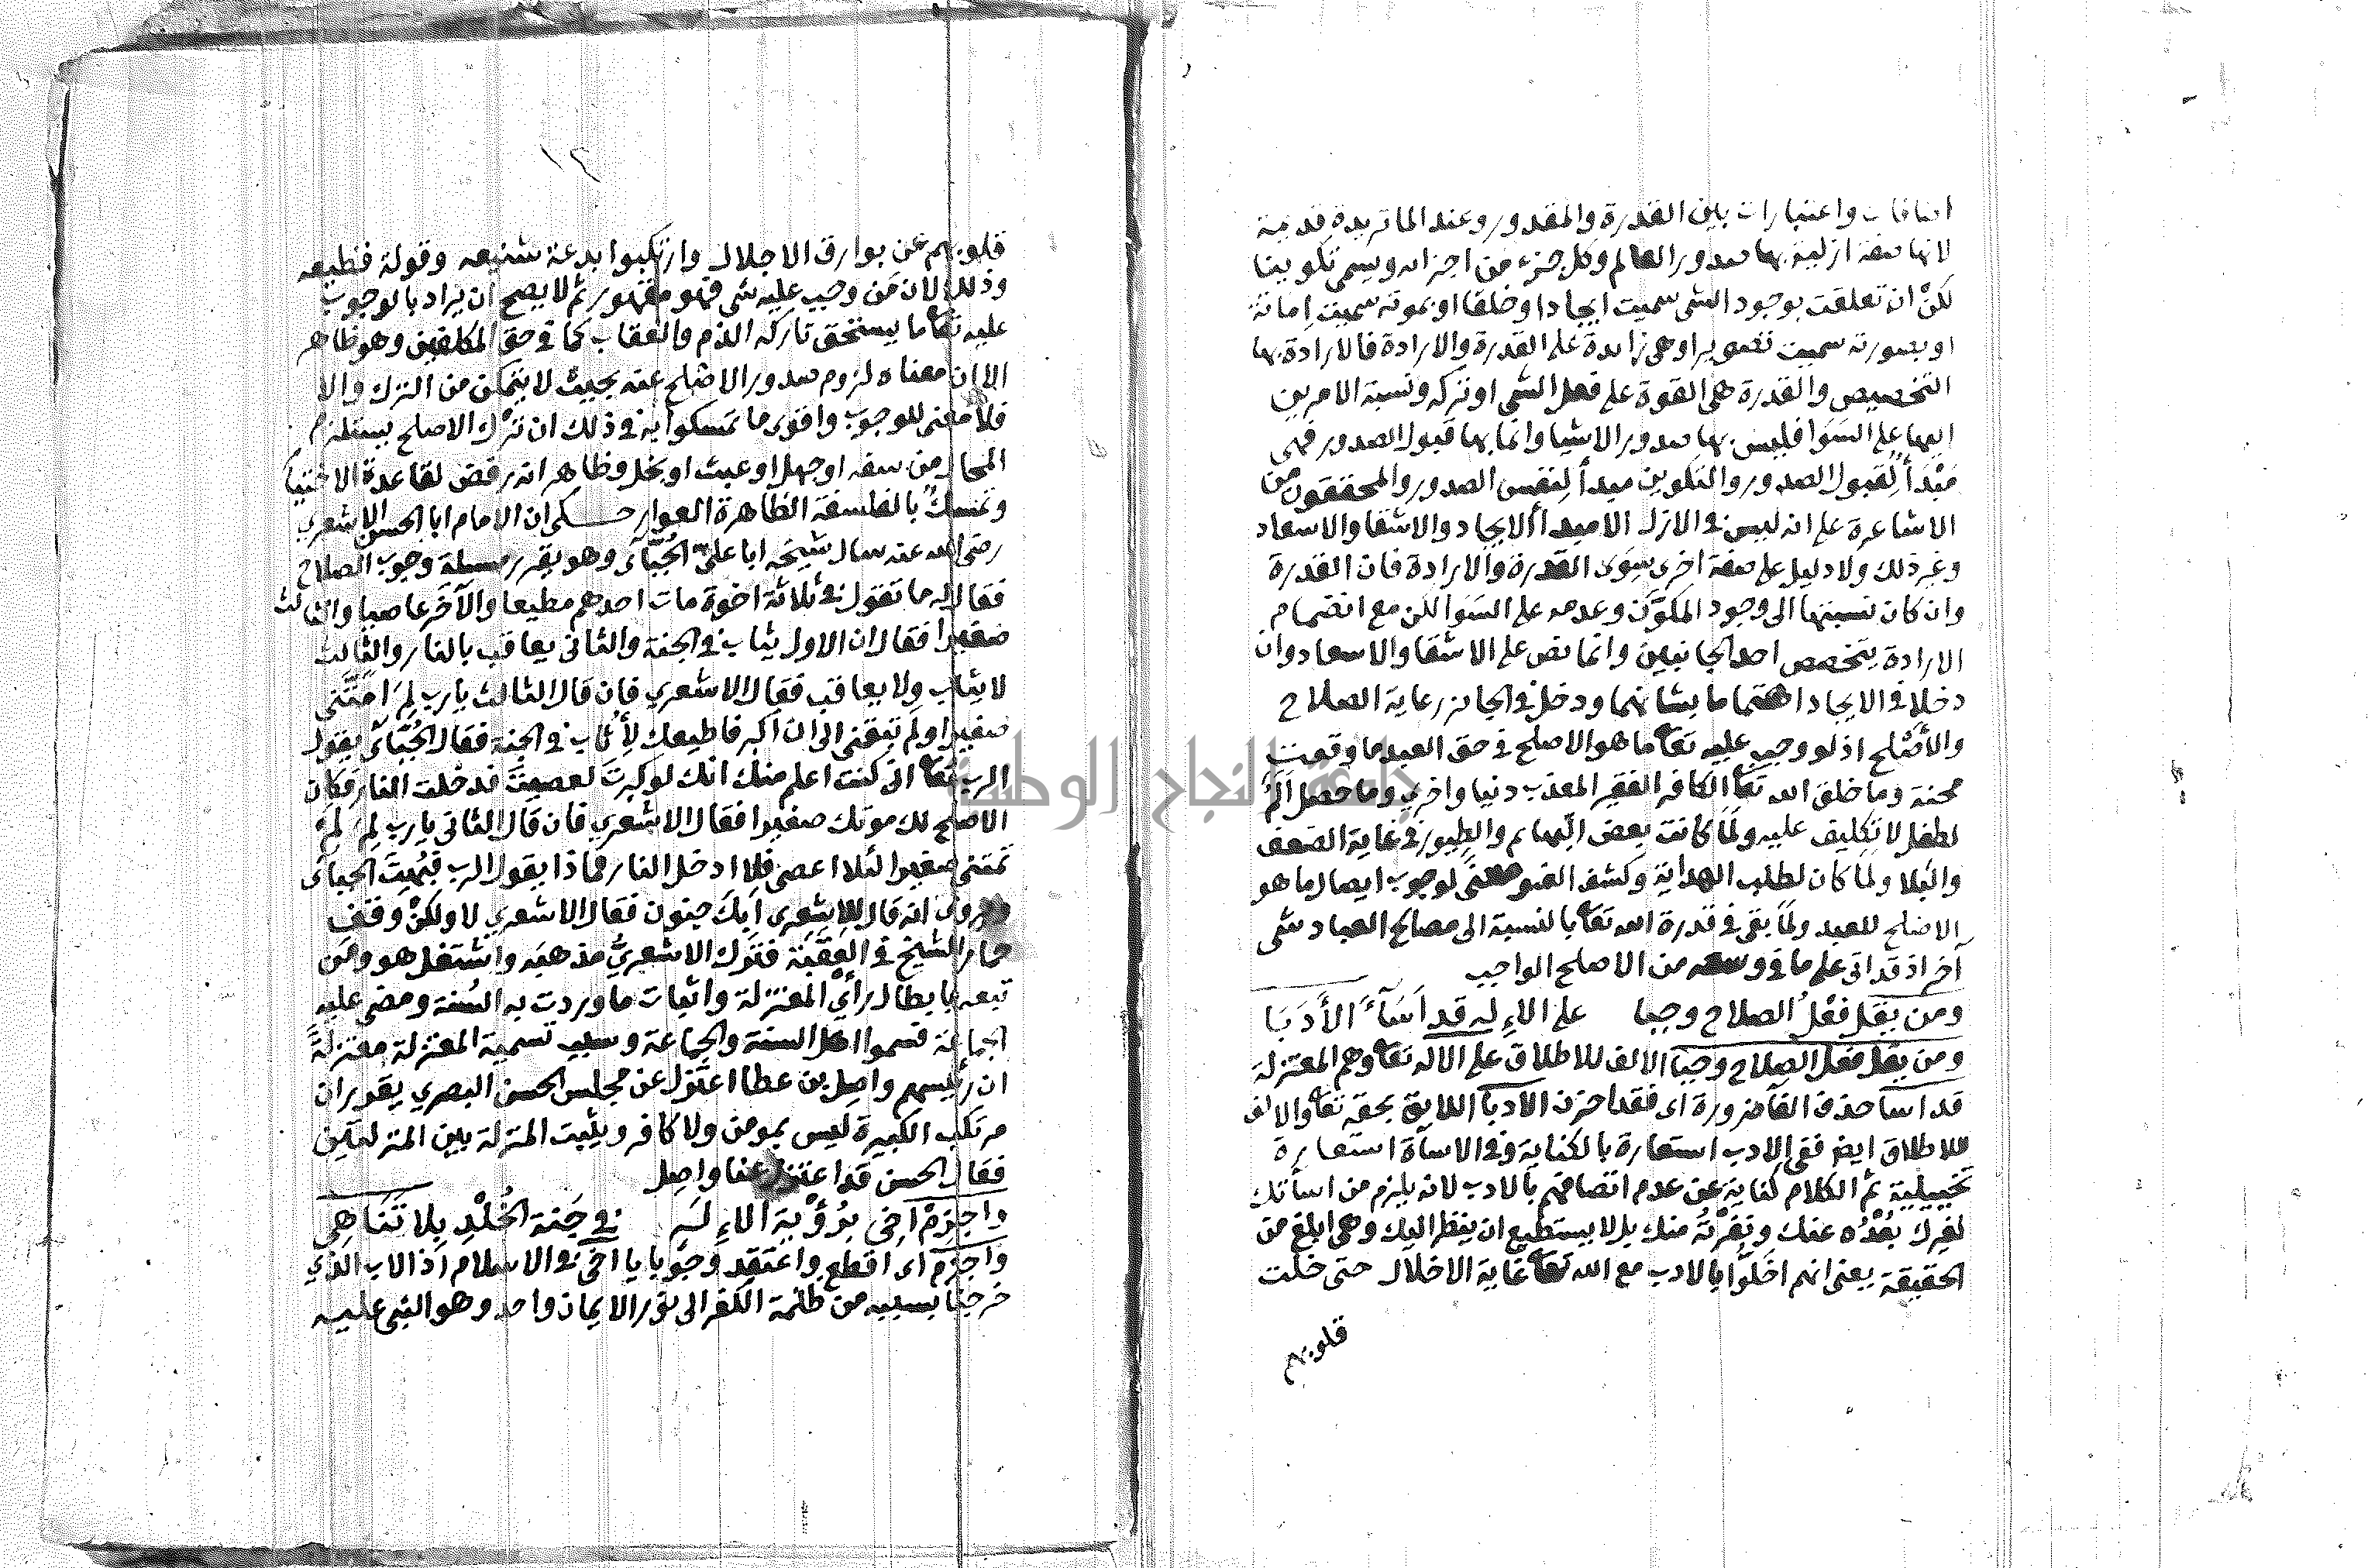 اضافات واعتبارات بين القدرة والمقدور وعند الماتريدية قديمة
لانها صفة ازلية بها صدور العالم وكل جزء من اجزائه ويسمى تكوينا
لكنْ ان تعلقت بوجود الشى سميت ايجادا وخلقا او بموته سميت اماتة
او بصورته سميت تصويرا وهى زائدة على القدرة والارادة فالارادة بها
التخصيص والقدرة هى القوة على فعل الشى او تركه ونسبة الامرين
اليها على السَوَا فليس بها صدور الاشيا وانما بها قبول الصدور فهى
مَبْدَأ لقبول الصدور والتكوين مبدأ لنفس الصدور والمحققون من
الاشاعرة على انه ليس فى الازل الا مبدأ الايجاد والاشقا والاسعاد
وغير ذلك ولا دليل على صفة اخرى سِوَى القدرة والارادة فان القدرة
وان كان نسبتها الى وجود المكوَّن وعدمه على السَوَا لكن مع انضمام
الارادة يتخصص احد الجانبين وانما نص على الاشقا والاسعاد وان
دخلا فى الايجاد اهتماما بشانهما ودخل فى الجائز رعاية الصلاح
والأصْلح اذ لو وجب عليه تعا ما هو الاصلح فى حق العبد ما وقعت
محنة وما خلق الله تعا الكافر الفقير المعذب دنيا واخرى وما حصل اَلَمٌ
لطفل لا تكليف عليه ولَمَا كانت بعض البهائم والطيور فى غاية الضعف
والبلا ولَمَا كان لطلب الهداية وكشف الضر معنًى لوجوب ايصال ما هو
الاصلح للعبد ولَمَا بقى فى قدرة الله تعا بالنسبة الى مصالح العباد شى
آخر اذ قد اتى على ما فى وسعه من الاصلح الواجب
ومن يقل فعْلُ الصلاح وجبا على الاِلـه قد اَسَآءَ الأَدَبَا
ومن يقل فعل الصلاح وجبا الالف للاطلاق على الاله تعا وهم المعتزلة
قد اسا حذف الفا ضرورة اى فقد احزن الادبا اللايق بحقه تعا والالف
للاطلاق ايض ففى الادب استعارة بالكناية وفى الاسأة استعارة
تخييلية ثم الكلام كناية عن عدم اتصافهم بالادب لانه يلزم من اسأتك
لغيرك بُعْدُه عنك ونفرتُه منك بل لا يستطيع ان ينظر اليك وهى ابلغ من
الحقيقة يعنى انهم اخَلّوا بالادب مع الله تعا غاية الاخلال حتى خلت
قلوبهم
١٢
قلوبهم عن بوارق الاجلال وارتكبوا بدعة شنيعه وقولة فظيعه
وذلك لان مَن وجب عليه شى فهو مقهور ثم لا يصح ان يراد بالوجوب
عليه تعا ما يستحق تاركه الذم والعقاب كما فى حق المكلفين وهو ظاهر
الا ان معناه لزوم صدور الاصلح عنه بحيث لا يتمكن من الترك والا
فلا معنى للوجوب واقوى ما تمسكوا به فى ذلك ان ترْك الاصلح يستلزم
المحال من سفه او جهل او عبث او بخل وظاهر انه رفض لقاعدة الاختيا
وتمسكٌ بالفلسفة الظاهرة العوار حكى ان الامام ابا الحسن الاشعري
رضى الله عنه سال شيخه ابا علىّ الجُبّآى وهو يقرر مسئلة وجوب الصلاح
فقال له ما تقول فى ثلاثة اخوة مات احدهم مطيعا والآخر عاصيا والثالث
صغيرا فقال ان الاول يثاب فى الجنة والثانى يعاقب بالنار والثالث
لا يثاب ولا يعاقب فقال الاشعري فان قال الثالث يا رب لِمَ اَمَتَّنى
صغيرا ولم تبقنى الى ان اكبر فاطيعك لأُثاب فى الجنة فقال الجُبّآى يقول
الرب تعا انى كنت اعلم منك انك لو كبرتَ لعصيتَ فدخلت النار فكان
الاصلح لك موتك صغيرا فقال الاشعري فان قال الثانى يا رب لِمَ لَمْ
تمتنى صغيرا لئلا اعصى فلا ادخل النار فماذا يقول الرب فبُهِتَ الجباى
وروى انه قال للاشعرى اَبِكَ جنون فقال الاشعري لا ولكنْ وقف
حمار الشيخ فى العَقَبَة فترك الاشعريُّ مذهبَه واشتغل هو ومَن
تبعه بابطال رأْي المعتزلة واثبات ما وردت به السُنة ومضى عليه
الجماعة فسموا اهل السنة والجماعة وسبب تسمية المعتزلة معتزلةً
ان رئيسهم واصل بن عطا اعتزل عن مجلس الحسن البصري يقرر ان
مرتكب الكبيرة ليس بمومن ولا كافر ويثبت المنزلة بين المنزلتين
فقال الحسن قد اعتزل عنا واصِل
واجزِمْ اَخِى بِرُؤْيَةِ الاِلـَهِ فى جَنة الخُلْدِ بِلا تَنَاهِى
واجزم اى اقطع واعتقد وجوبا يا اخى فى الاسلام اذ الاب الذي
خرجنا بسببه من ظلمة الكفر الى نور الايمان واحد وهو النبى عليه